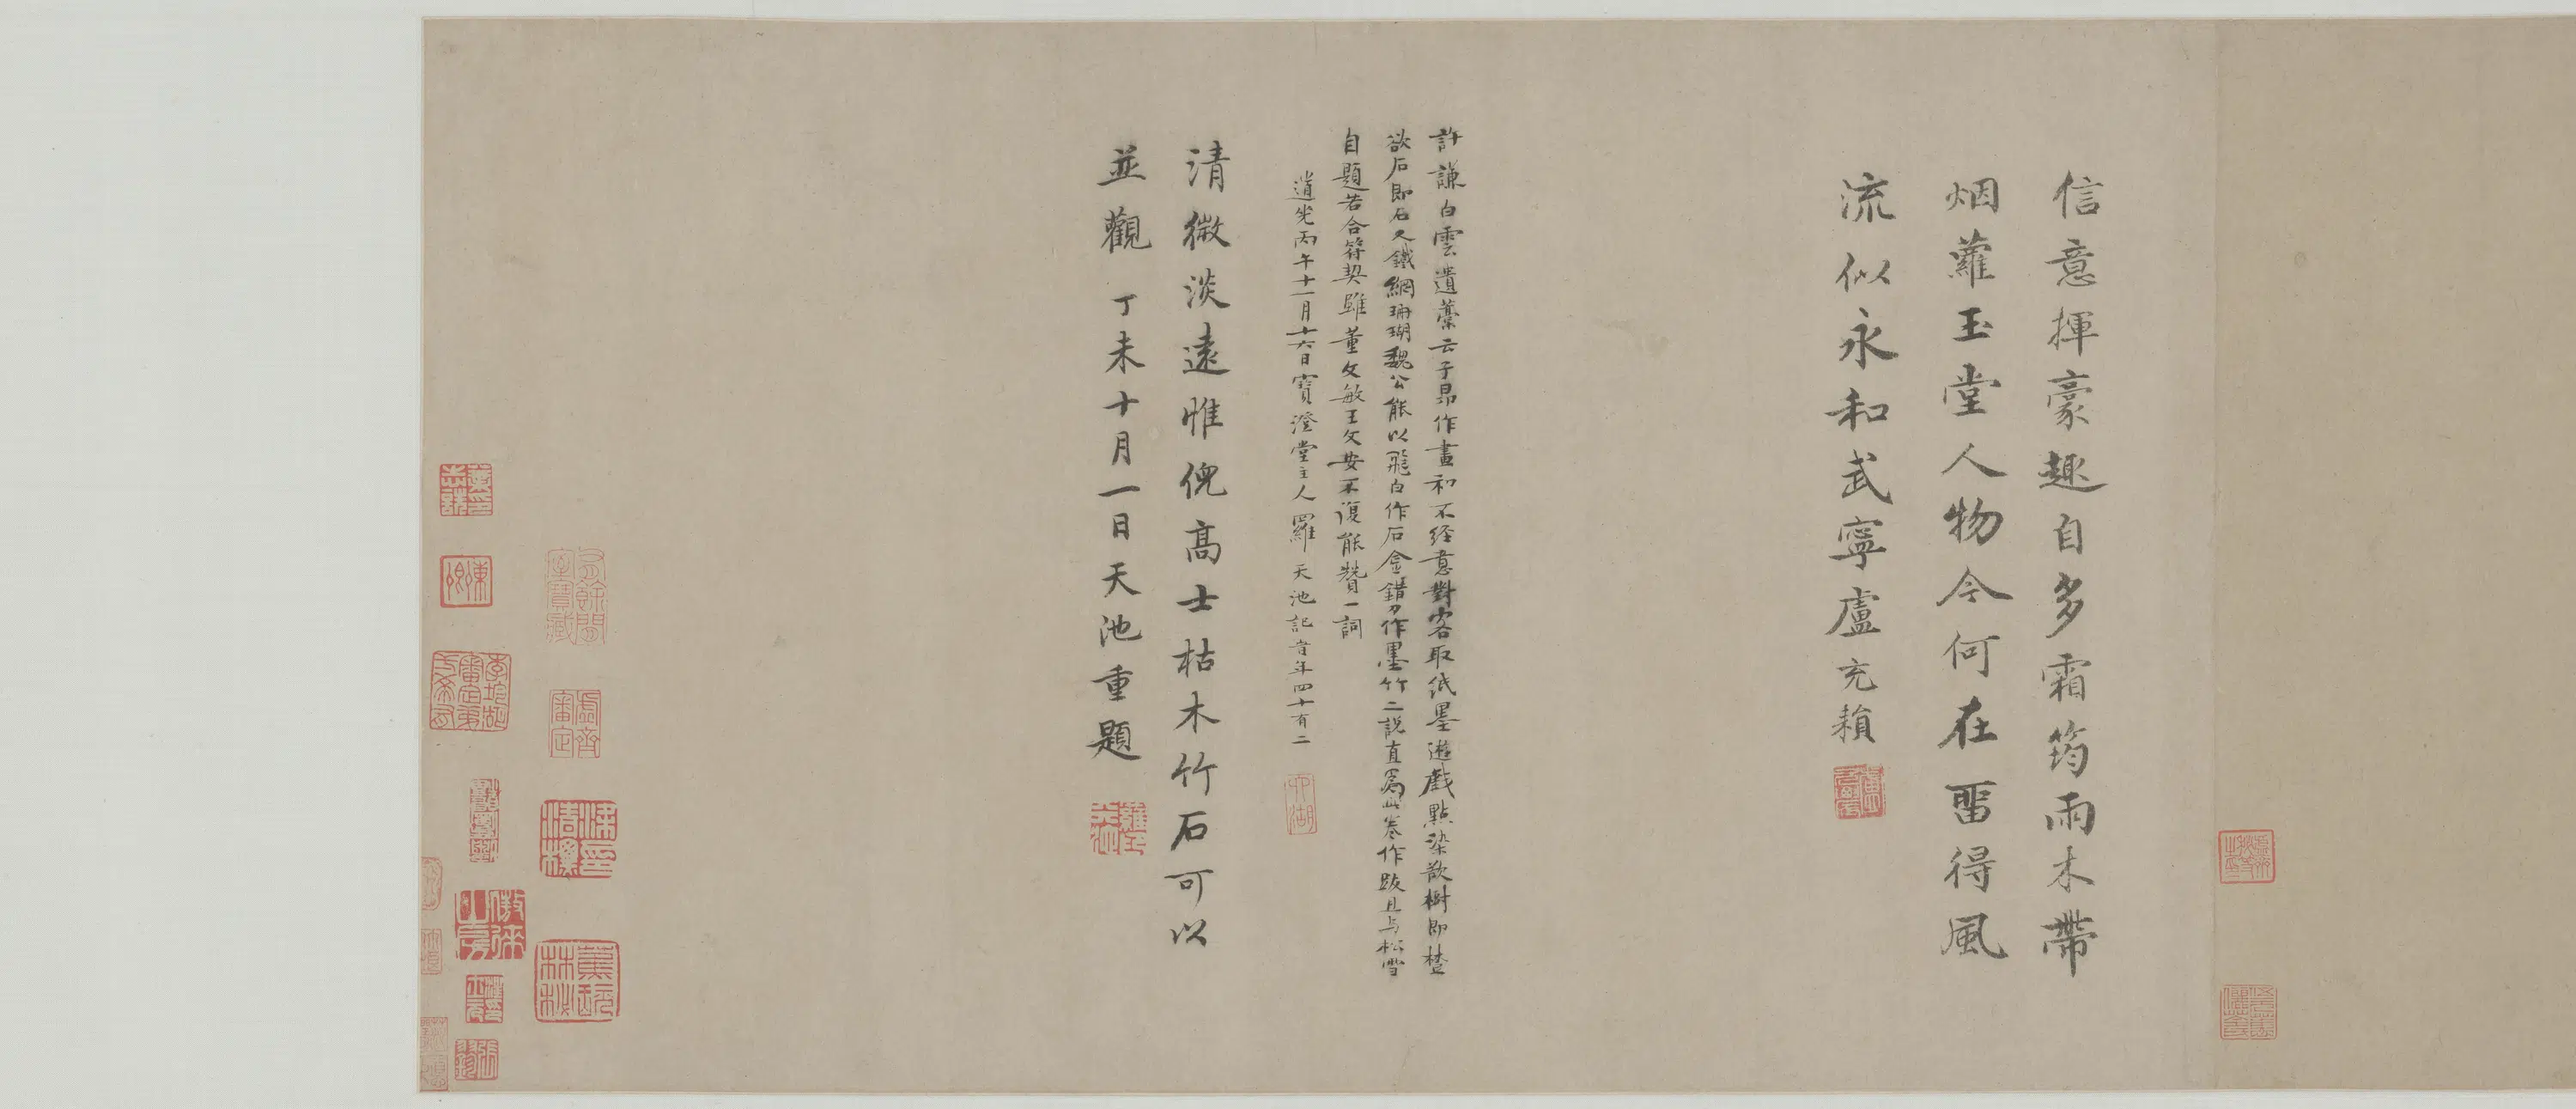 信意揮豪趣自多霜筠雨木帶
烟蘿玉堂人物今何在畱得風
流似永和武寧盧充頛
許謙白雲遺藁云子昂作畫初不经意對客取纸墨遊戲點染欲樹即樹
欲石即石又鐵網珊瑚魏公能以飛白作石金錯刀作墨竹二說直為此卷作跋且与松雪
自題若合符契雖董文敏王文安不復能贊一詞
道光丙午十一月十六日寶澄堂主人羅天池記昔年四十有二
清微淡遠惟倪高士枯木竹石可以
並觀丁未十月一日天池重題